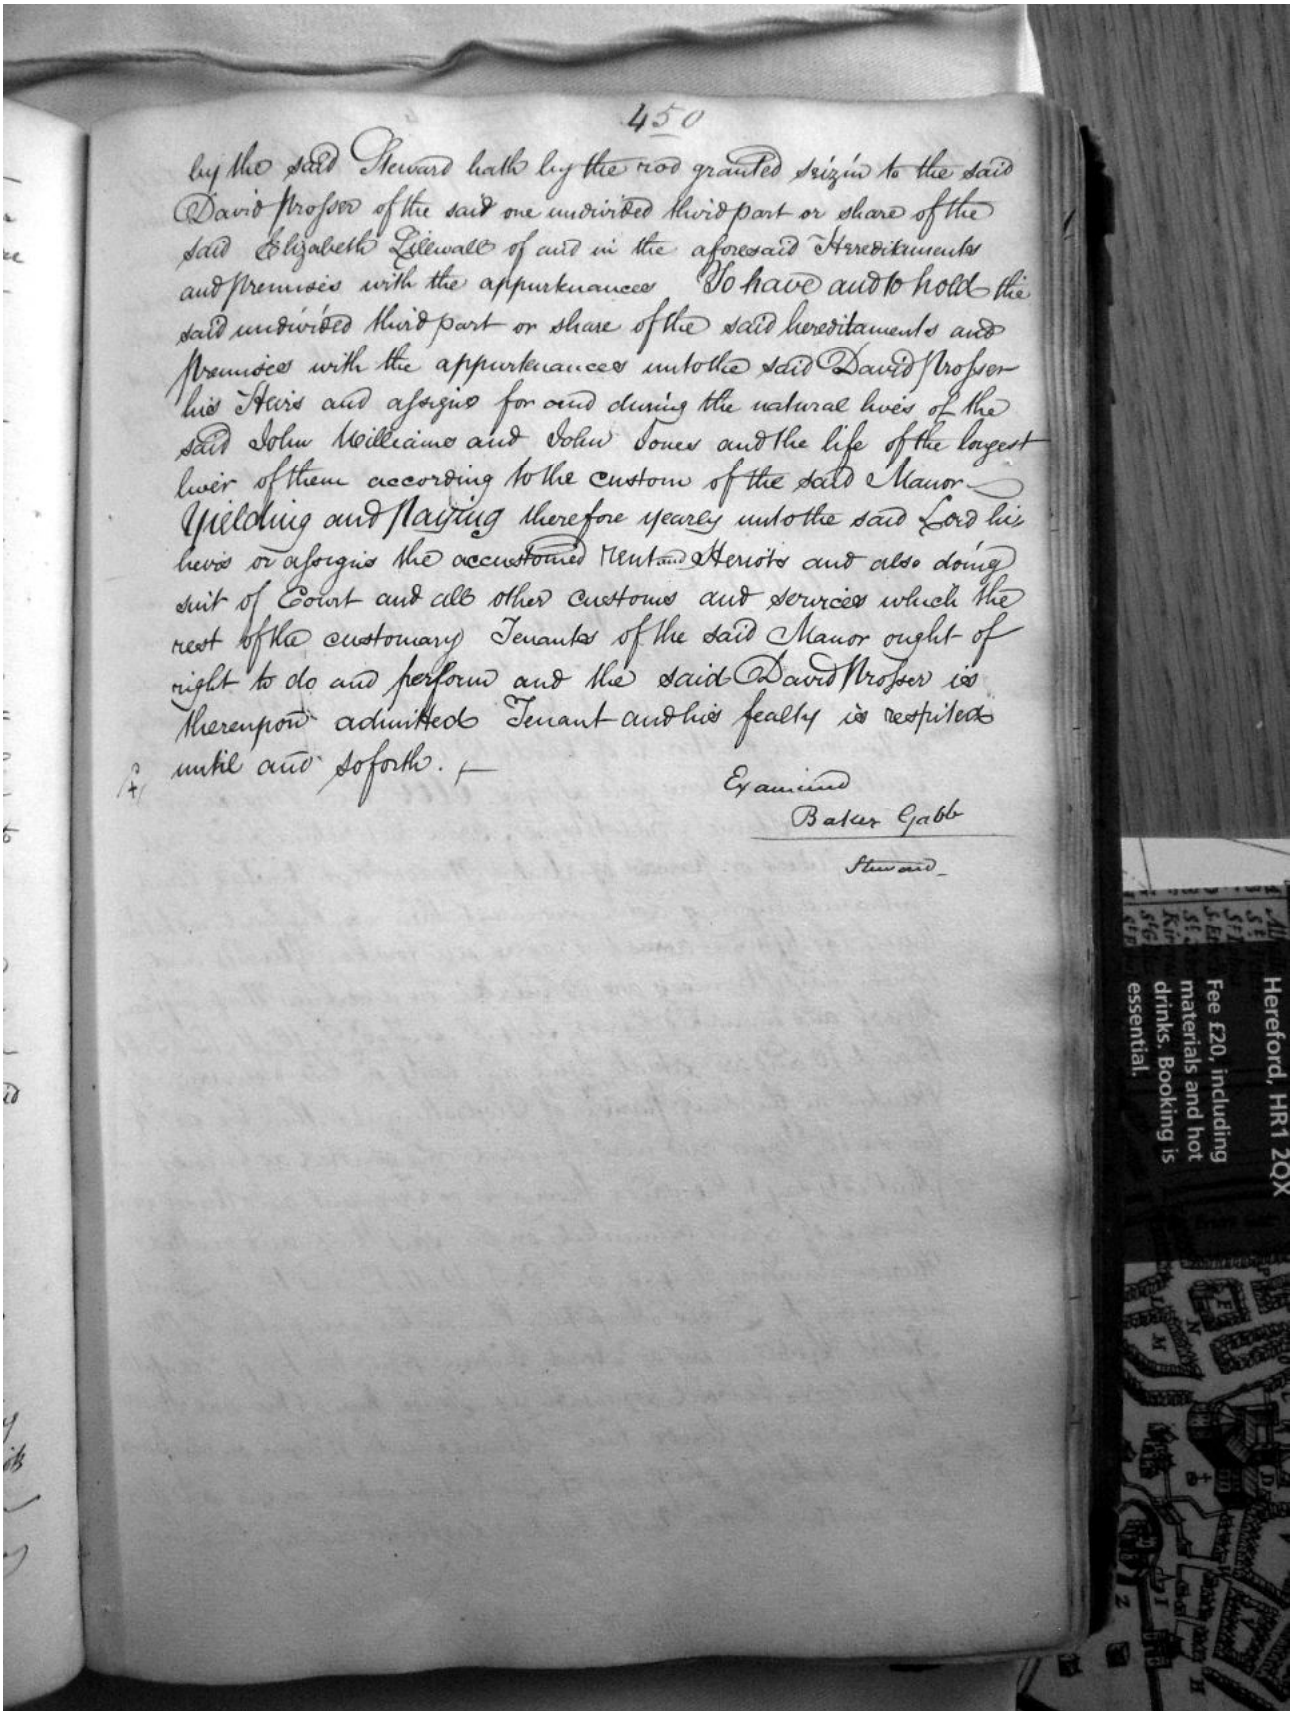 450
by the said Steward hath by the rod granted seizin to the said
David Prosser of the said one undivided third part or share of the
said Elizabeth Lilewall of and in the aforesaid Hereditaments
and premises with the appurtenances To have and to hold the
said undivided third part or share of the said hereditaments and
premises with the appurtenances unto the said David Prosser
his Heirs and assigns for and during the natural lives of the
said John Williams and John Jones and the life of the longest
liver of them according to the custom of the said Manor
Yielding and Paying therefore yearly unto the said Lord his
heirs or assigns the accustomed rent and Heriots and also doing
suit of Court and all other customs and services which the
rest of the customary Tenants of the said Manor ought of
right to do and perform and the said David Prosser is
thereupon admitted Tenant and his fealty is respited
until and so forth.
Examined
Baker Gabb
Steward
Hereford, HR1 2QX
Fee £20, including
materials and hot
drinks. Booking is
essential.